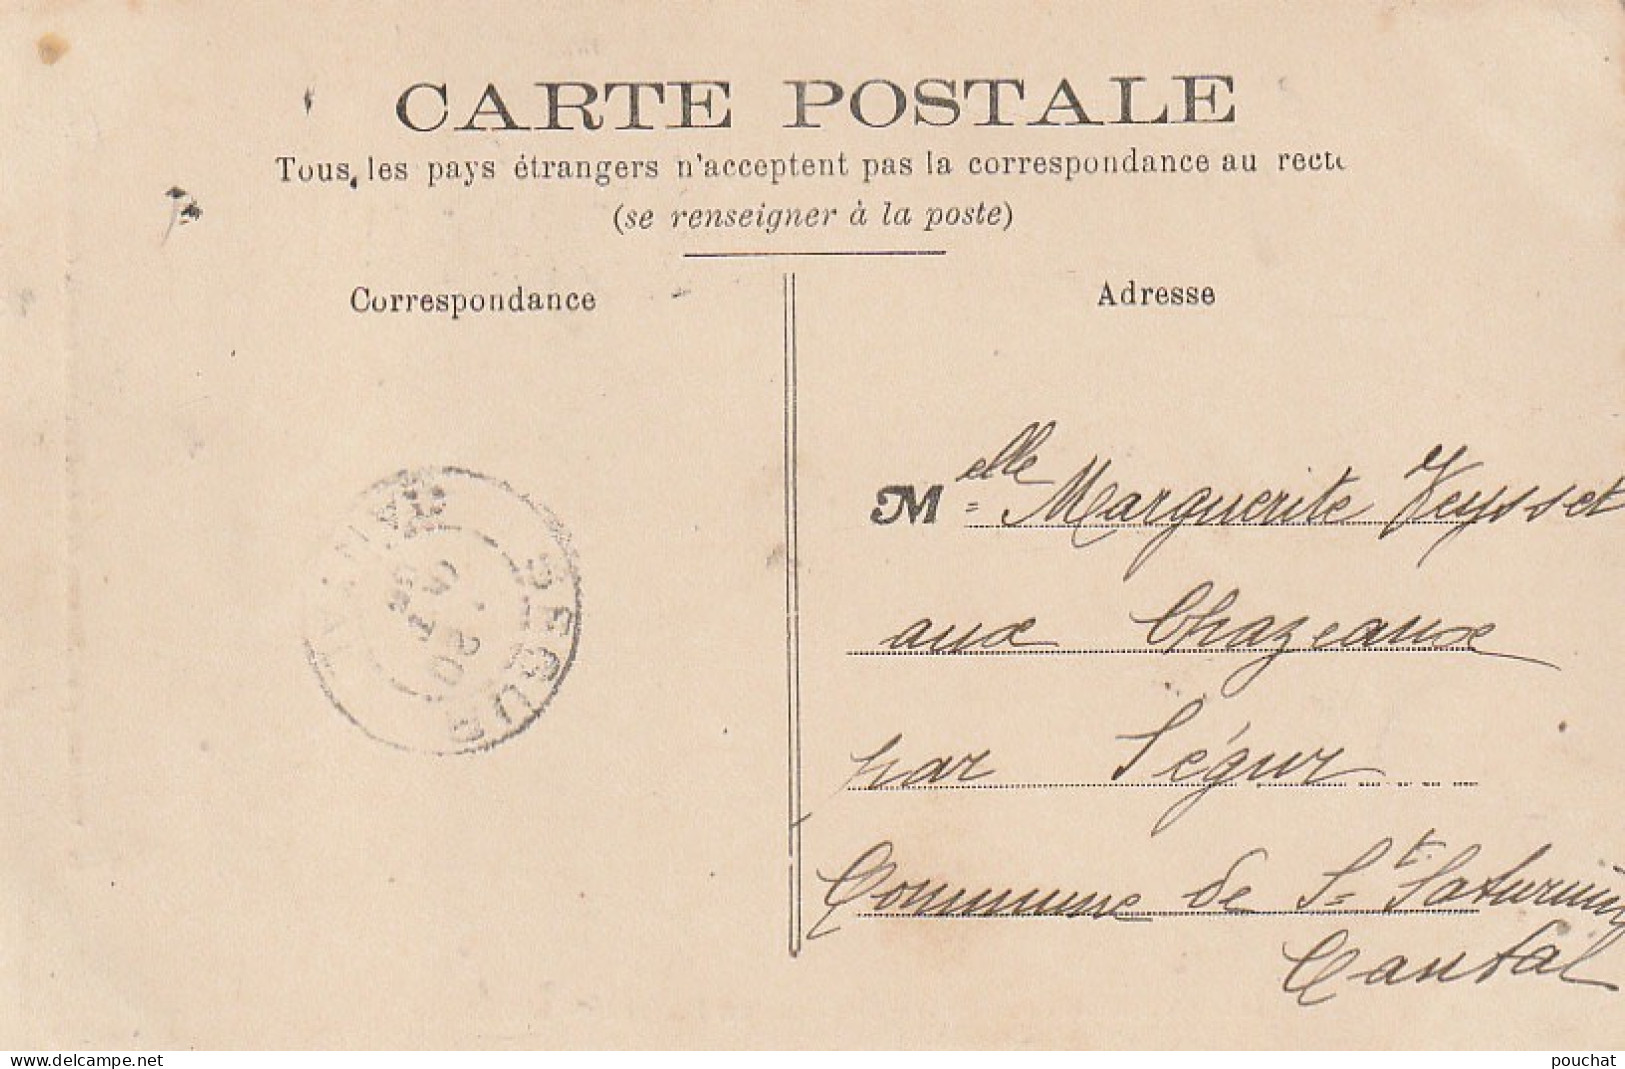 CARTE POSTALE
Tous les pays étrangers n'acceptent pas la correspondance au recto
(se renseigner à la poste)
Correspondance
Adresse
Melle Marguerite Veysset
aux Chazeaux
par Ségur
Commune de St Saturnin
Cantal
SEGUR
20
www.delcampe.net
pouchat